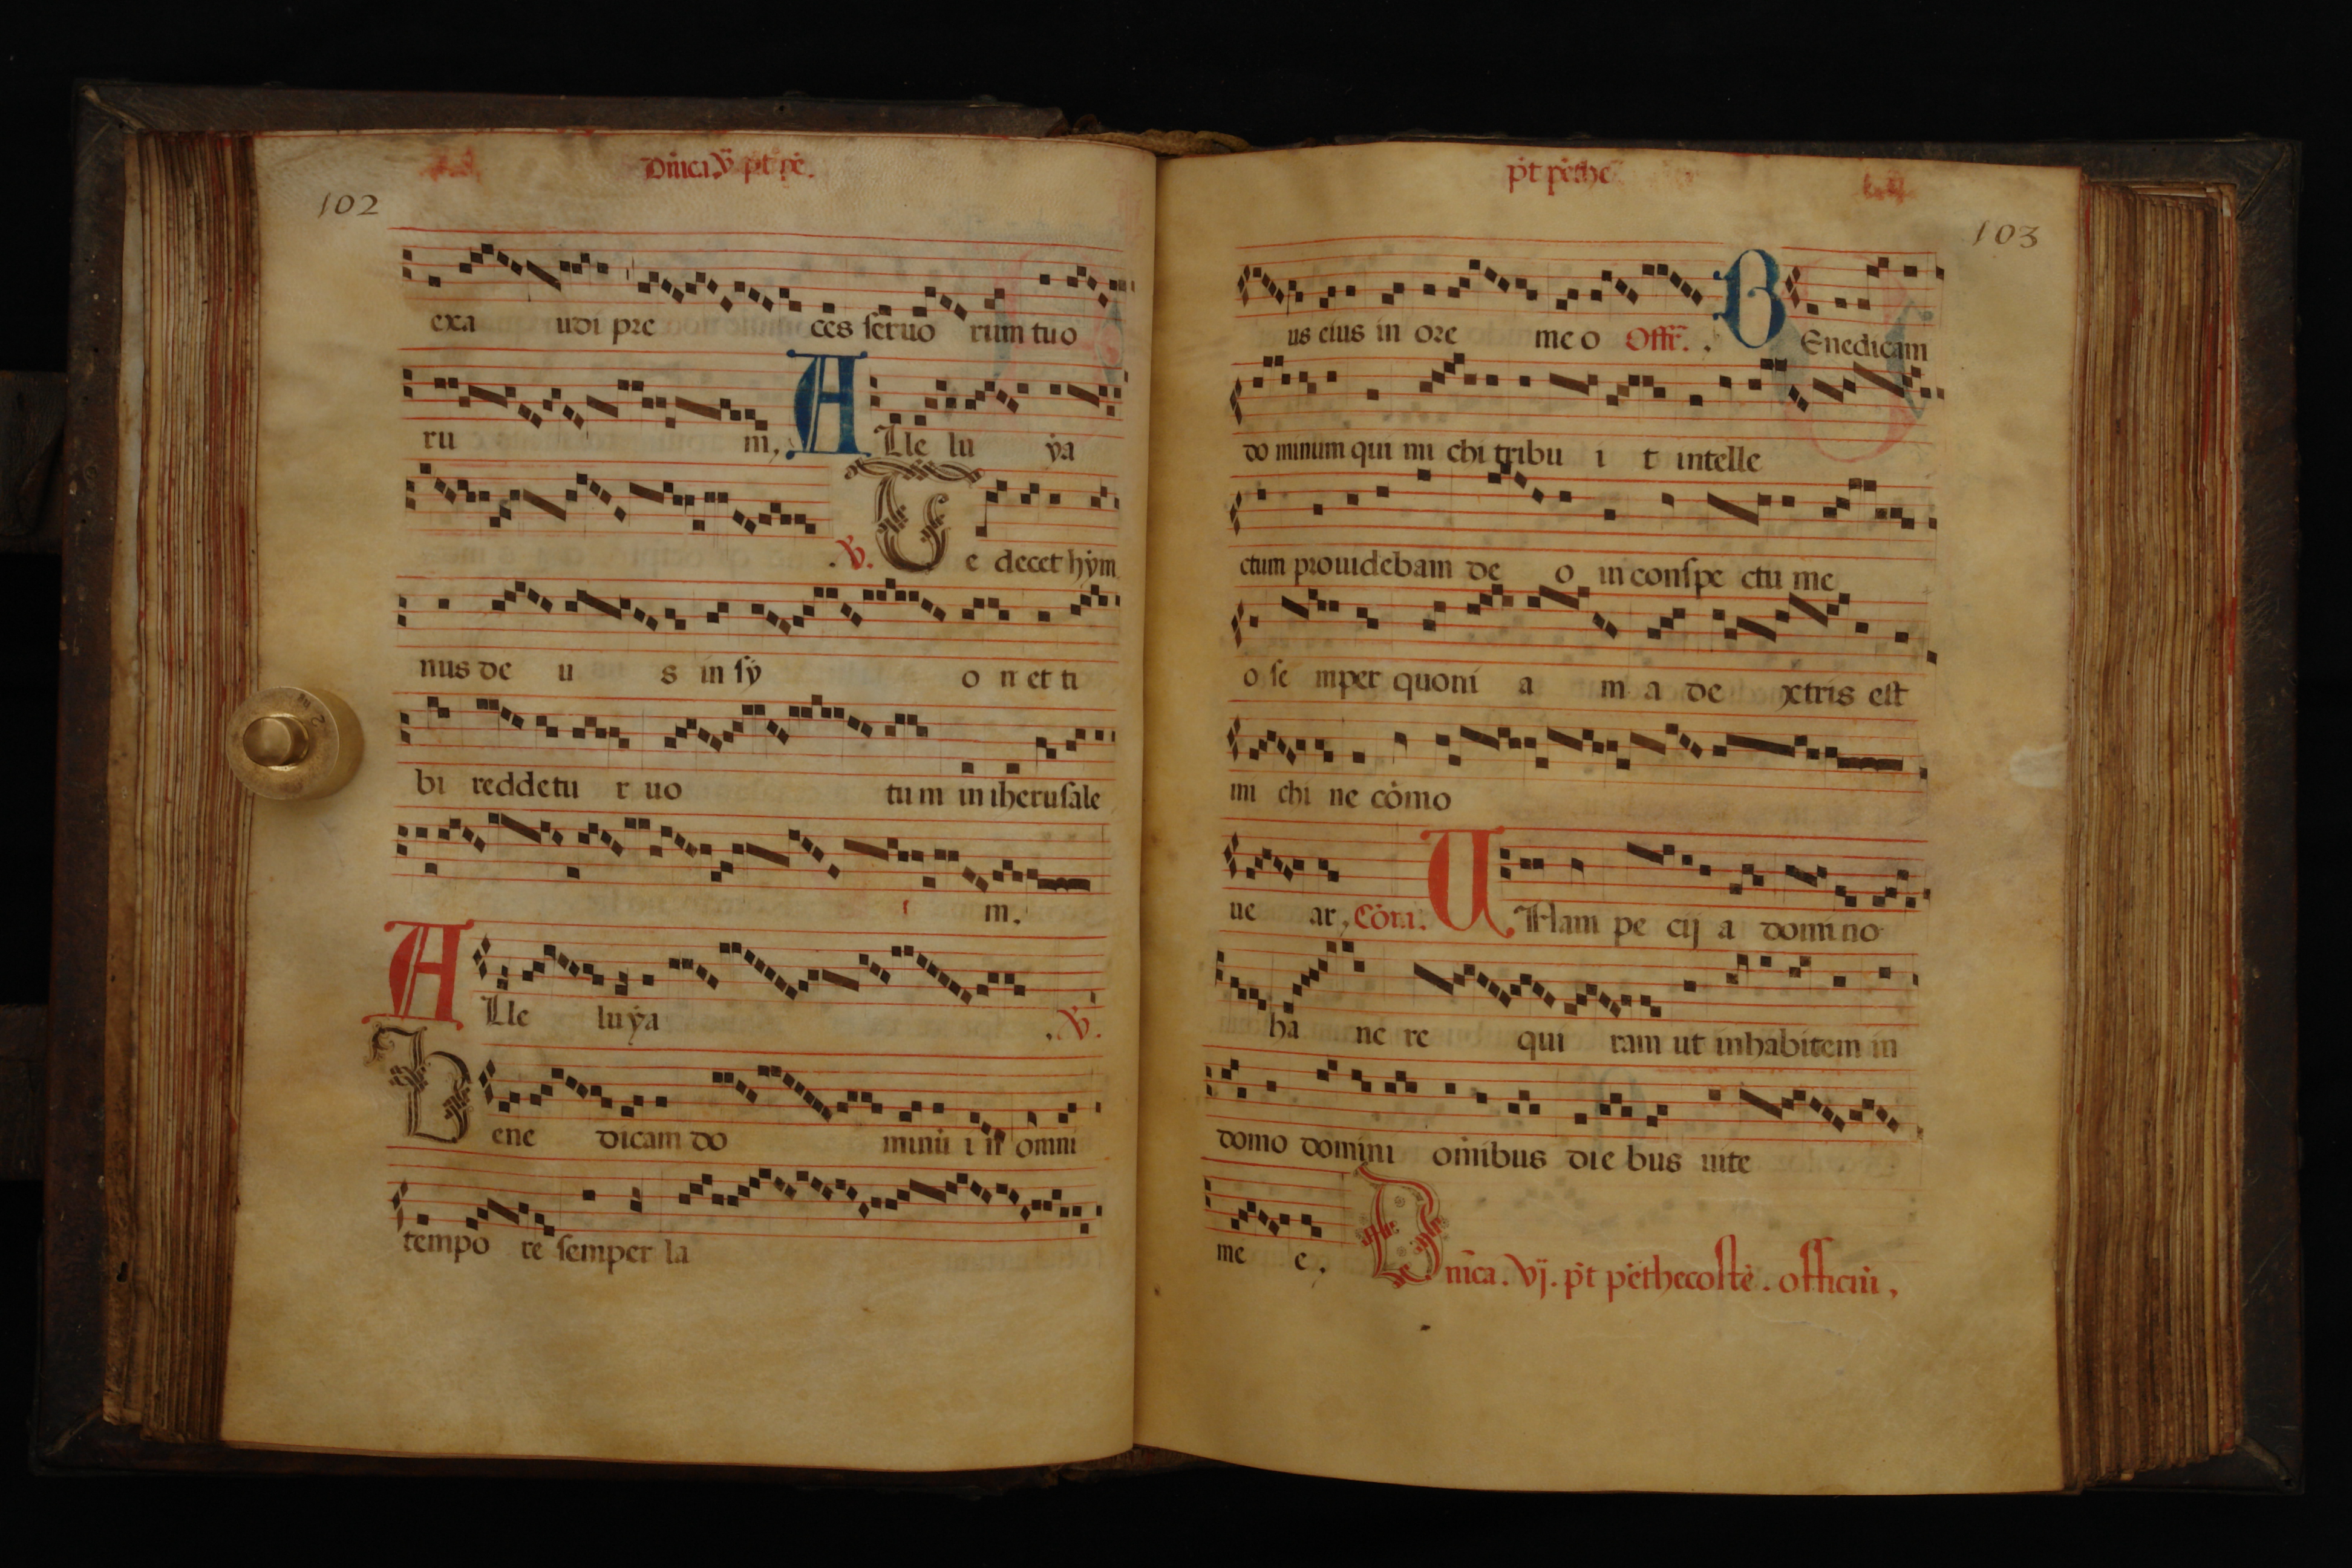 Dn̄ica. v̄ pt pē.
102
exa udi pre ces seruo rum tuo
ru m, A Lle lu ẏa
.℣. T e decet hẏm
nus de u s in sẏ o n et ti
bi reddetu r uo tum in iherusale
m.
A Lle luẏa .℣.
B ene dicam do minū i n omni
tempo re semper la
pt pēthe
103
us eius in ore me o Offr̄. B Enedicam
do minum qui mi chi tribu i t intelle
ctum prouidebam de o in conspe ctu me
o se mper quoni a m a de xtris est
mi chi ne cōmo
ue ar, Cōn. U Nam pe cij a domino
ha nc re qui ram ut inhabitem in
domo domini om̄ibus die bus uite
me e, D nīca. vj. pt pēthecostē. officiū,